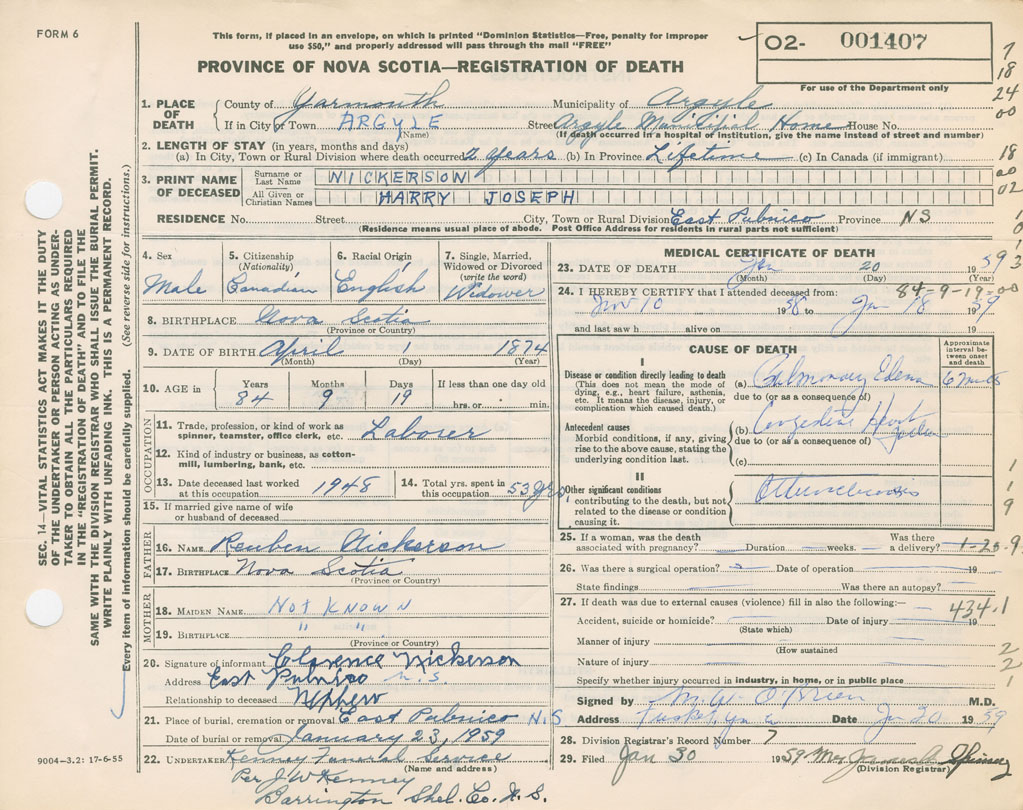 FORM 6
This form, if placed in an envelope, on which is printed "Dominion Statistics—Free, penalty for improper
use $50," and properly addressed will pass through the mail "FREE"
O2- 001407
For use of the Department only
PROVINCE OF NOVA SCOTIA—REGISTRATION OF DEATH
7
18
24
00
18
00
02
SEC. 14—VITAL STATISTICS ACT MAKES IT THE DUTY
OF THE UNDERTAKER OR PERSON ACTING AS UNDER-
TAKER TO OBTAIN ALL THE PARTICULARS REQUIRED
IN THE "REGISTRATION OF DEATH" AND TO FILE THE
SAME WITH THE DIVISION REGISTRAR WHO SHALL ISSUE THE BURIAL PERMIT.
WRITE PLAINLY WITH UNFADING INK. THIS IS A PERMANENT RECORD.
Every item of information should be carefully supplied. (See reverse side for instructions.)
1. PLACE OF DEATH
County of Yarmouth Municipality of Argyle
If in City or Town ARGYLE Street Argyle Municipial Home House No.
(Name) (If death occurred in a hospital or institution, give the name instead of street and number)
2. LENGTH OF STAY (in years, months and days)
(a) In City, Town or Rural Division where death occurred 2 years (b) In Province Lifetime (c) In Canada (if immigrant)
3. PRINT NAME OF DECEASED
Surname or Last Name NICKERSON
All Given or Christian Names HARRY JOSEPH
RESIDENCE No. Street City, Town or Rural Division East Pubnico Province NS
(Residence means usual place of abode. Post Office Address for residents in rural parts not sufficient)
4. Sex
Male
5. Citizenship (Nationality)
Canadian
6. Racial Origin
English
7. Single, Married, Widowed or Divorced (write the word)
Widower
8. BIRTHPLACE Nova Scotia
(Province or Country)
9. DATE OF BIRTH April 1 1874
(Month) (Day) (Year)
10. AGE in Years Months Days If less than one day old
84 9 19 hrs. or min.
OCCUPATION
11. Trade, profession, or kind of work as spinner, teamster, office clerk, etc. Laborer
12. Kind of industry or business, as cotton-mill, lumbering, bank, etc.
13. Date deceased last worked at this occupation 1948
14. Total yrs. spent in this occupation 53 yrs
15. If married give name of wife or husband of deceased
FATHER
16. NAME Reuben Nickerson
17. BIRTHPLACE Nova Scotia
(Province or Country)
MOTHER
18. MAIDEN NAME Not Known
19. BIRTHPLACE " "
(Province or Country)
20. Signature of informant Clarence Nickerson
Address East Pubnico N.S.
Relationship to deceased Nephew
21. Place of burial, cremation or removal East Pubnico N.S
Date of burial or removal January 23, 1959
22. UNDERTAKER Kenney Funeral Service
(Name and address)
Per J W Kenney
Barrington Shel. Co. N.S.
9004—3.2: 17-6-55
MEDICAL CERTIFICATE OF DEATH
23. DATE OF DEATH Jan 20 1959
(Month) (Day) (Year)
24. I HEREBY CERTIFY that I attended deceased from: 84-9-19=00
Nov 10 1958 to Jan 18 1959
and last saw h alive on 19
CAUSE OF DEATH
Approximate interval between onset and death
I
Disease or condition directly leading to death
(This does not mean the mode of dying, e.g., heart failure, asthenia, etc. It means the disease, injury, or complication which caused death.)
(a) Pulmonary Edema
due to (or as a consequence of)
Antecedent causes
Morbid conditions, if any, giving rise to the above cause, stating the underlying condition last.
(b) Congestive Heart
due to (or as a consequence of)
(c)
II
Other significant conditions
contributing to the death, but not related to the disease or condition causing it.
25. If a woman, was the death associated with pregnancy? Duration weeks. Was there a delivery? 1-23-9
26. Was there a surgical operation? Date of operation 19
State findings Was there an autopsy?
27. If death was due to external causes (violence) fill in also the following:— 434.1
Accident, suicide or homicide? Date of injury 19
(State which)
Manner of injury
(How sustained
Nature of injury
Specify whether injury occurred in industry, in home, or in public place
1
1
9
2
2
1
Signed by M. W. O'Brien M.D.
Address Date Jan 20 1959
28. Division Registrar's Record Number 7
29. Filed Jan 30 1959 Mrs
(Division Registrar)